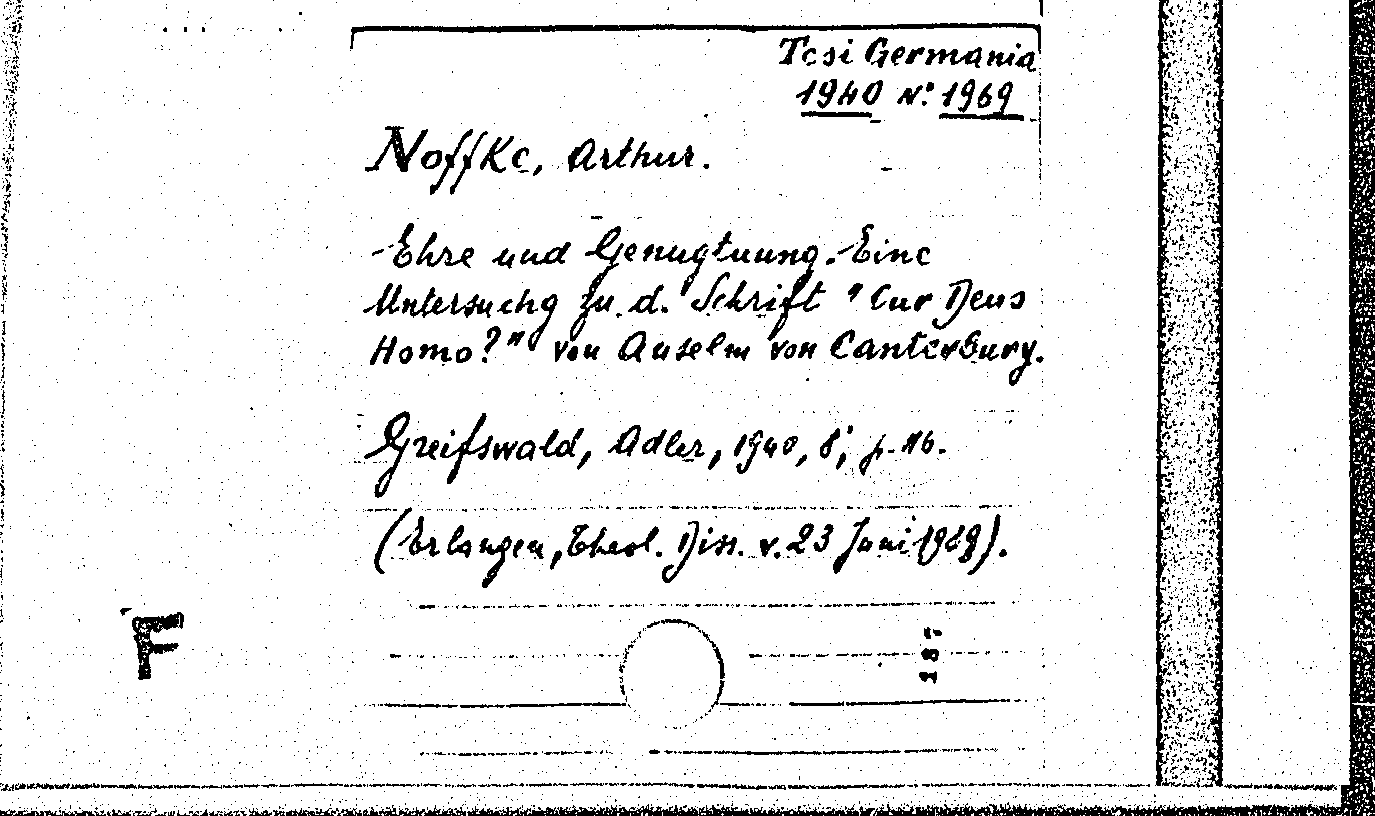 Tesi Germania
1940 N.° 1969
Noffke, Arthur.
Ehre und Genugtuung. Eine
Untersuchg zu d. Schrift "Cur Deus
Homo?" von Anselm von Canterbury.
Greifswald, Adler, 1940, 8°, p. 116.
(Erlangen, Theol. Diss. v. 23 Juni
F
187